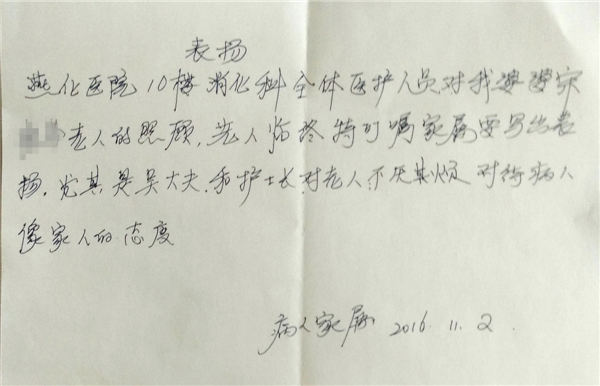 表扬
燕化医院10楼消化科全体医护人员对我婆婆宋
老人的照顾,老人临终特叮嘱家属要写出表
扬,尤其是吴大夫.和护士长对老人不失其烦,对待病人
像家人的态度
病人家属 2016.11.2.